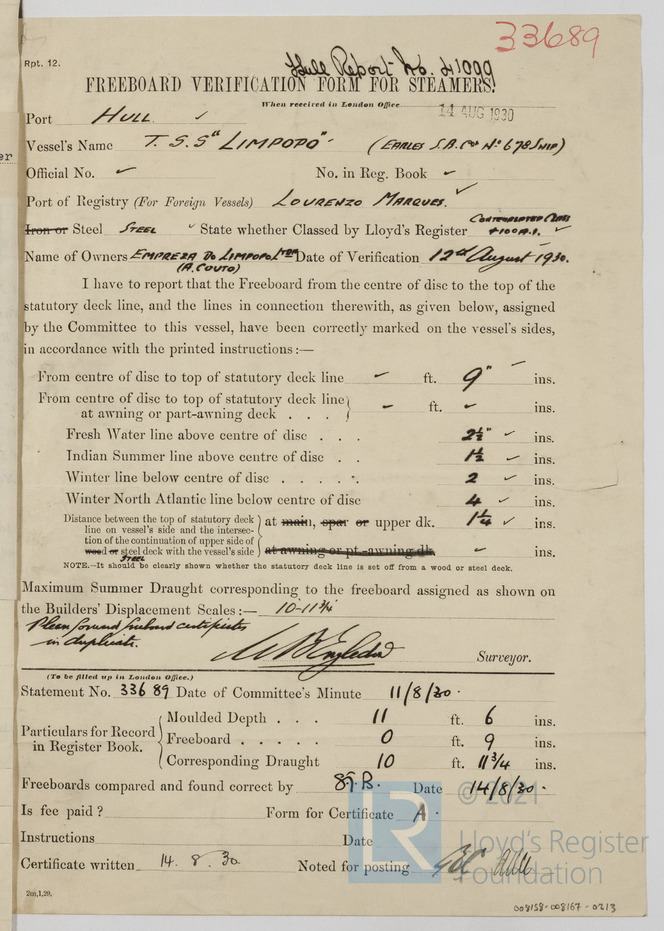 33689
Rpt. 12.
Hull Report No. 41099
FREEBOARD VERIFICATION FORM FOR STEAMERS.
When received in London Office 14 AUG 1930
Port HULL ✓
Vessel's Name T.S.S "LIMPOPO" (EARLES S.&.Co No 678 SHIP)
Official No. ✓ No. in Reg. Book ✓
Port of Registry (For Foreign Vessels) LOURENZO MARQUES. ✓
Iron or Steel STEEL ✓ State whether Classed by Lloyd's Register CONTEMPLATED CLASS +100A.1. ✓
Name of Owners EMPREZA DO LIMPOPO LTDA Date of Verification 12th August 1930.
(A. COUTO)
I have to report that the Freeboard from the centre of disc to the top of the
statutory deck line, and the lines in connection therewith, as given below, assigned
by the Committee to this vessel, have been correctly marked on the vessel's sides,
in accordance with the printed instructions:—
From centre of disc to top of statutory deck line ✓ ft. 9" ins.
From centre of disc to top of statutory deck line
at awning or part-awning deck . . . - ft. ✓ ins.
Fresh Water line above centre of disc . . . 2½" ✓ ins.
Indian Summer line above centre of disc . . 1½ ✓ ins.
Winter line below centre of disc . . . . . 2 ✓ ins.
Winter North Atlantic line below centre of disc 4 ✓ ins.
Distance between the top of statutory deck
line on vessel's side and the intersec- at main, spar or upper dk. 1¼ ✓ ins.
tion of the continuation of upper side of
wood or steel deck with the vessel's side at awning or pt.-awning dk. ✓ ins.
STEEL
NOTE.—It should be clearly shown whether the statutory deck line is set off from a wood or steel deck.
Maximum Summer Draught corresponding to the freeboard assigned as shown on
the Builders' Displacement Scales:— 10-11¾
Please forward freeboard certificates
in duplicate.
Surveyor.
(To be filled up in London Office.)
Statement No. 33689 Date of Committee's Minute 11/8/30.
Particulars for Record in Register Book.
Moulded Depth . . . 11 ft. 6 ins.
Freeboard . . . . . 0 ft. 9 ins.
Corresponding Draught 10 ft. 11¾ ins.
Freeboards compared and found correct by Date 14/8/30.
Is fee paid? Form for Certificate A.
Instructions Date
Certificate written 14. 8. 30. Noted for posting
2m,1,29.
© 2021
LR
Lloyd's Register
Foundation
008158-008167-0213